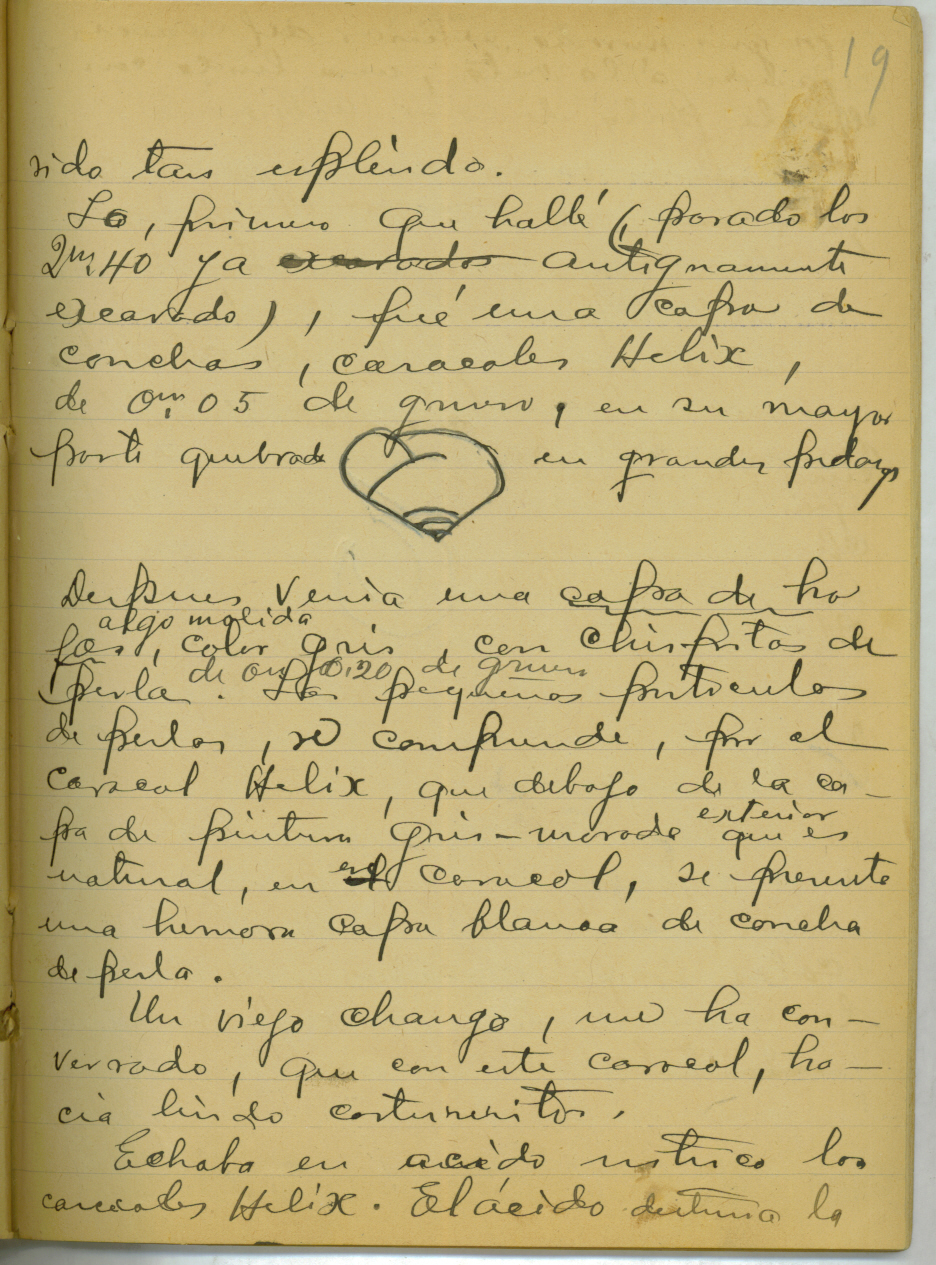 19
sido tan espléndo.
Lo, primero que hallé (, pasado los
2m,40 ya excavados antiguamente
excavado) , fué una capa de
conchas, caracoles Helix,
de 0m,05 de grueso, en su mayor
parte quebrada en grandes pedazos
Despues venia una capa de ho
algo molida
jas, color gris, con chispitas de
de 0m,20 de grueso
perla. Las pequenas particulas
de perlas, se comprende, por el
caracol Helix, que debajo de la ca-
exterior
pa de pintura gris-morada que es
natural, en el caracol, se presente
una hermosa capa blanca de concha
de perla.
Un viejo chango, me ha con-
versado, que con este caracol, ha-
cia lindo costureritos.
Echaba en acido nitrico los
caracoles Helix. El ácido destruia la